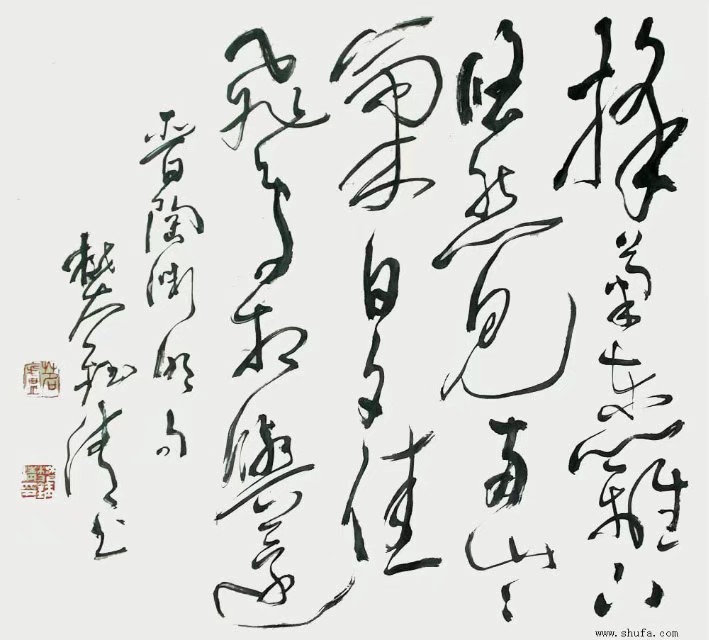 採菊東籬下
悠然見南山〻
氣日夕佳
飛鳥相與還
晉陶淵明句
樊清書
www.shufa.com